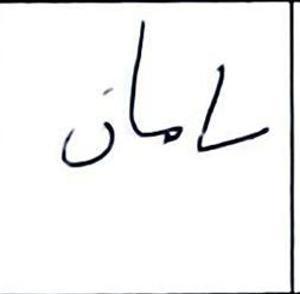 سامان